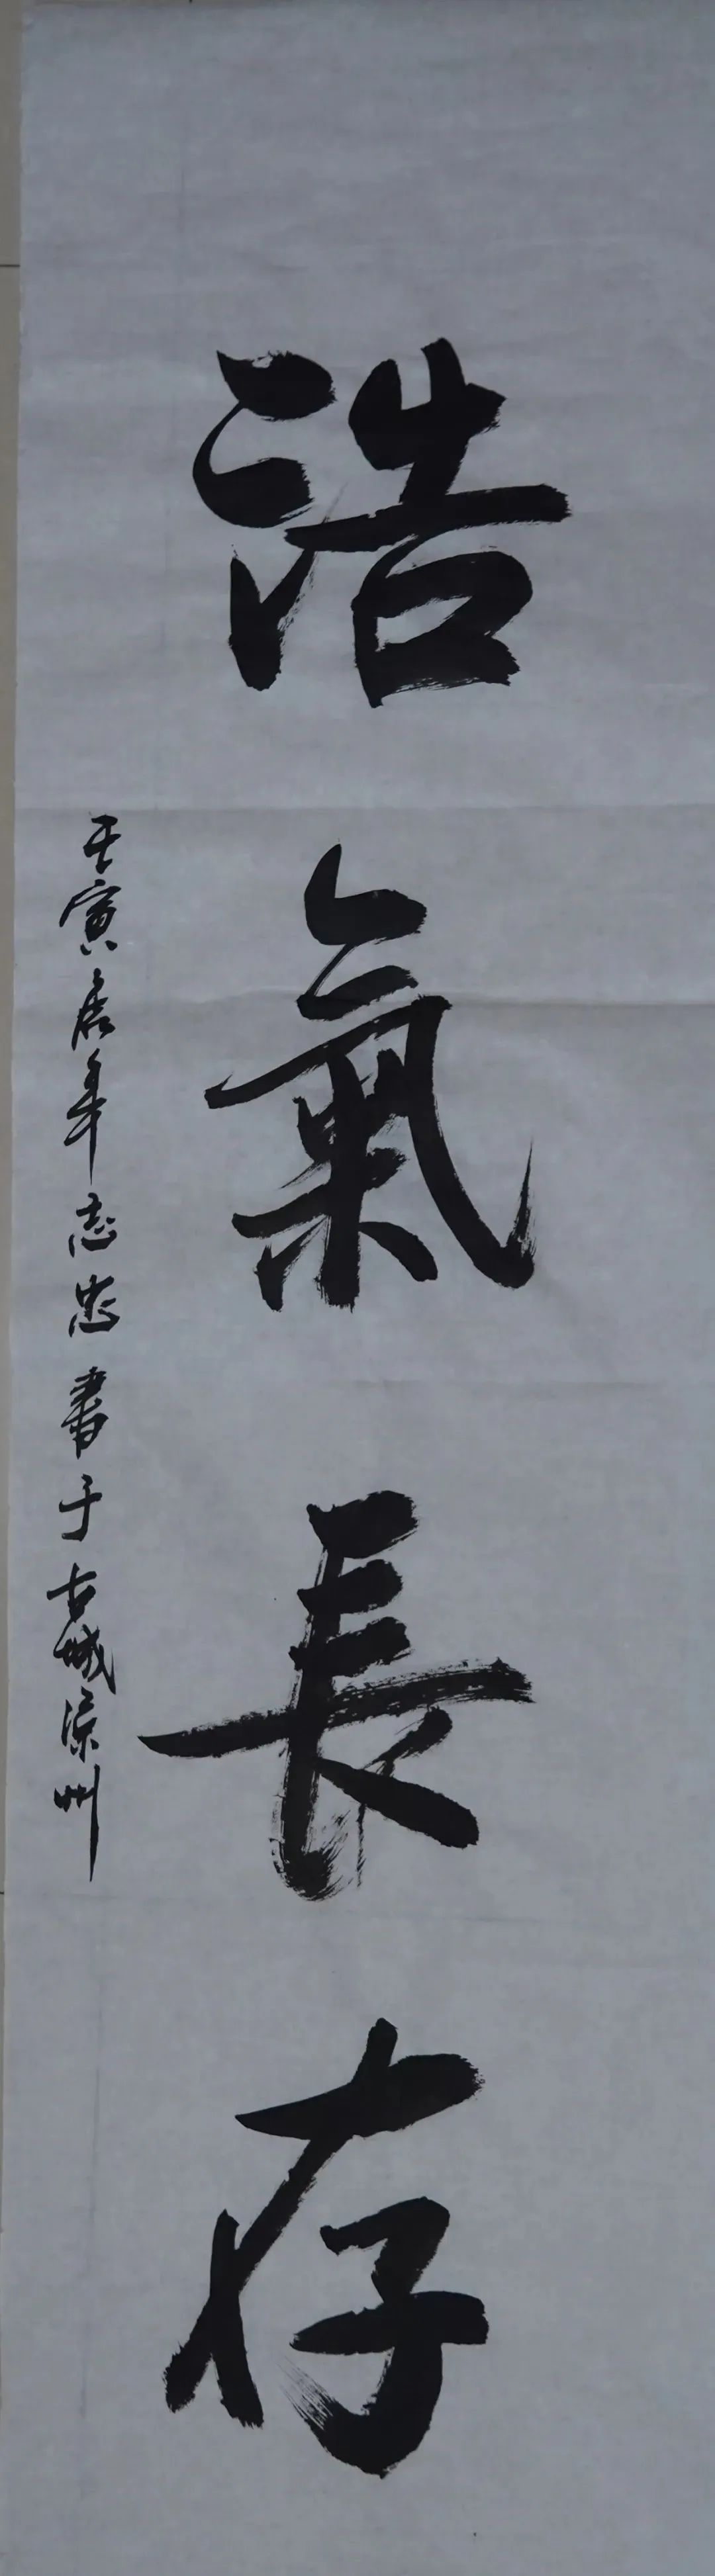 浩氣長存
壬寅虎年志忠書于古城涼州